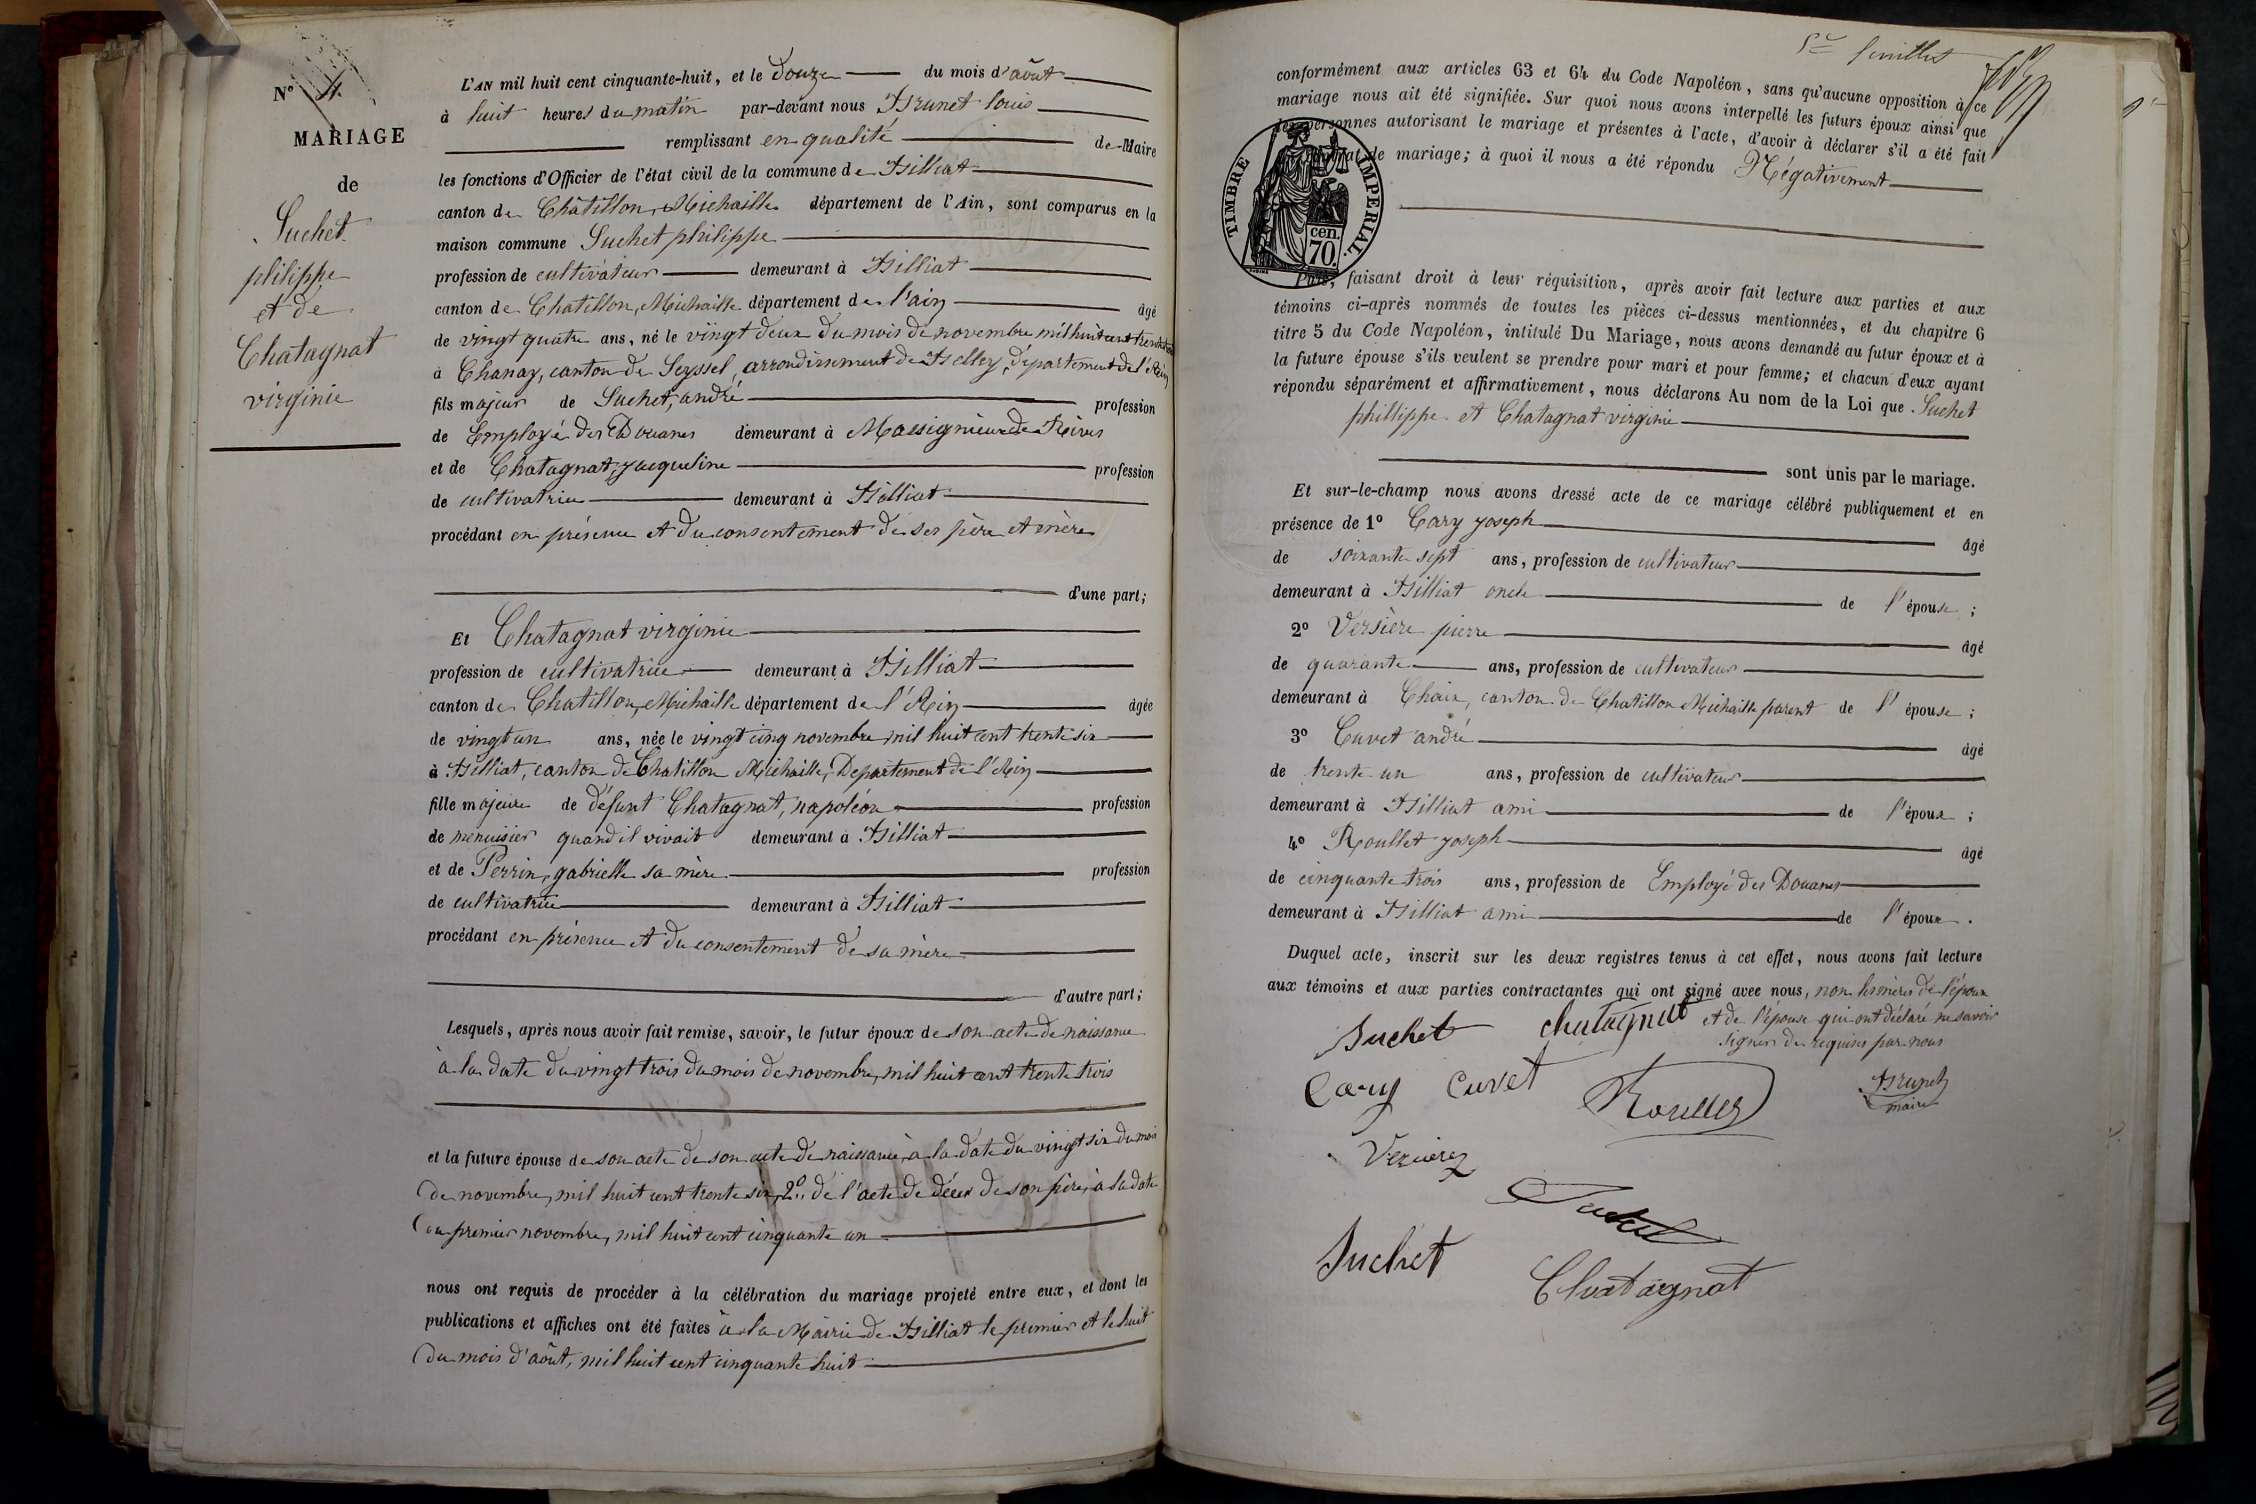 N° 4.
MARIAGE
de
Suchet
philippe
et de
Chatagnat
virginie
L'AN mil huit cent cinquante-huit, et le douze du mois d'août
à huit heures du matin par-devant nous Brunet louis
remplissant en qualité de Maire
les fonctions d'Officier de l'état civil de la commune de Billiat
canton de Châtillon, Michaille département de l'Ain, sont comparus en la
maison commune Suchet philippe
profession de cultivateur demeurant à Billiat
canton de Chatillon, Michaille département de l'ain âgé
de vingt quatre ans, né le vingt deux du mois de novembre mil huit cent trente trois
à Chanay, canton de Seyssel, arrondissement de Belley, département de l'Ain
fils majeur de Suchet, andré profession
de Employé des Douanes demeurant à Massignieu de Rives
et de Chatagnat, jacqueline profession
de cultivatrice demeurant à Billiat
procédant en présence et du consentement de ses père et mère
d'une part;
Et Chatagnat virginie
profession de cultivatrice demeurant à Billiat
canton de Chatillon, Michaille département de l'Ain âgée
de vingt un ans, née le vingt cinq novembre mil huit cent trente six
à Billiat, canton de Chatillon Michaille, Departement de l'Ain
fille majeure de défunt Chatagnat, napoléon profession
de menuisier quand il vivait demeurant à Billiat
et de Perrin, gabrielle sa mère profession
de cultivatrice demeurant à Billiat
procédant en présence et du consentement de sa mère
d'autre part;
Lesquels, après nous avoir fait remise, savoir, le futur époux de son acte de naissance
à la date du vingt trois du mois de novembre, mil huit cent trente trois
et la future épouse de son acte de son acte de naissance, à la date du vingt six du mois
de novembre, mil huit cent trente six, 2° de l'acte de décès de son père, à la date
du premier novembre, mil huit cent cinquante un
nous ont requis de procéder à la célébration du mariage projeté entre eux, et dont les
publications et affiches ont été faites à la Mairie de Billiat le premier et le huit
du mois d'août, mil huit cent cinquante huit
feuillet
conformément aux articles 63 et 64 du Code Napoléon, sans qu'aucune opposition à ce
mariage nous ait été signifiée. Sur quoi nous avons interpellé les futurs époux ainsi que
les personnes autorisant le mariage et présentes à l'acte, d'avoir à déclarer s'il a été fait
de mariage; à quoi il nous a été répondu Négativement
TIMBRE IMPERIAL.
cen.
70.
Puis, faisant droit à leur réquisition, après avoir fait lecture aux parties et aux
témoins ci-après nommés de toutes les pièces ci-dessus mentionnées, et du chapitre 6
titre 5 du Code Napoléon, intitulé Du Mariage, nous avons demandé au futur époux et à
la future épouse s'ils veulent se prendre pour mari et pour femme; et chacun d'eux ayant
répondu séparément et affirmativement, nous déclarons Au nom de la Loi que Suchet
phillippe et Chatagnat virginie
sont unis par le mariage.
Et sur-le-champ nous avons dressé acte de ce mariage célébré publiquement et en
présence de 1° Cary joseph âgé
de soixante sept ans, profession de cultivateur
demeurant à Billiat oncle de l'épouse;
2° Versière pierre âgé
de quarante ans, profession de cultivateur
demeurant à Chaix, canton de Chatillon Michaille parent de l'épouse;
3° Cuvet andré âgé
de trente un ans, profession de cultivateur
demeurant à Billiat ami de l'époux;
4° Roullet joseph âgé
de cinquante trois ans, profession de Employé des Douanes
demeurant à Billiat ami de l'époux.
Duquel acte, inscrit sur les deux registres tenus à cet effet, nous avons fait lecture
aux témoins et aux parties contractantes qui ont signé avec nous, non les mères de l'époux
et de l'épouse qui ont déclaré ne savoir
signer de requises par nous
Suchet chatagnat
Cary Cuvet Roullet Brunet
maire
Suchet
Suchet
Chatagnat